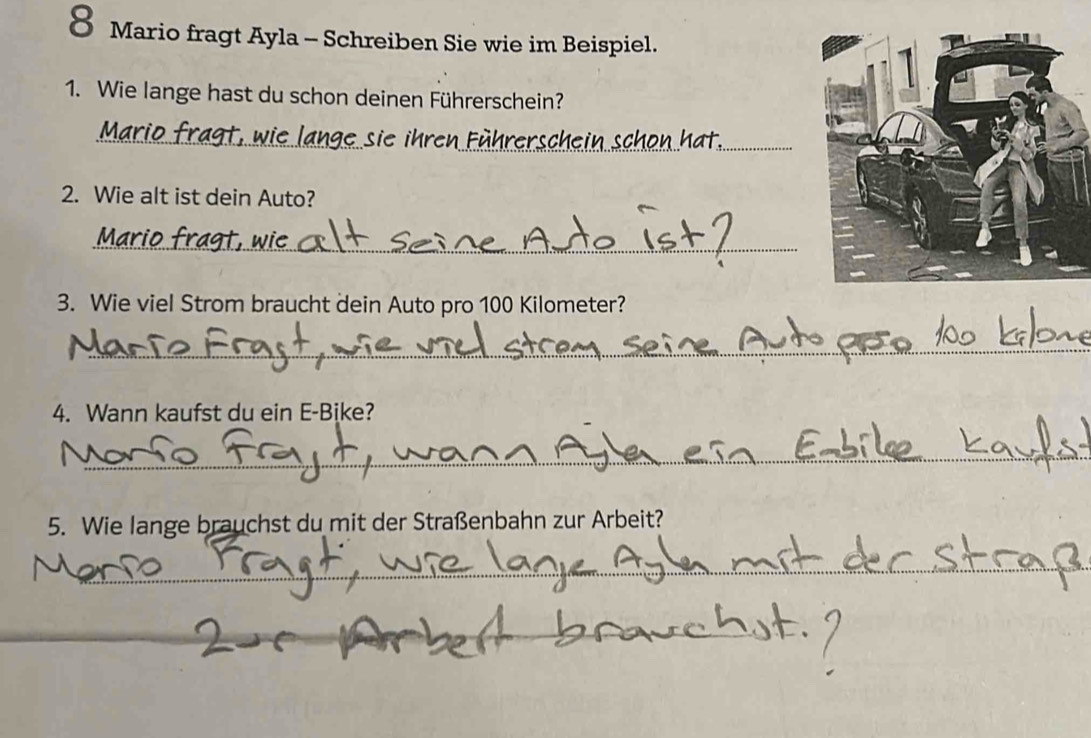 8 Mario fragt Ayla – Schreiben Sie wie im Beispiel.
1. Wie lange hast du schon deinen Führerschein?
Mario fragt, wie lange sie ihren Führerschein schon hat.
2. Wie alt ist dein Auto?
Mario fragt, wie alt seine Auto ist?
3. Wie viel Strom braucht dein Auto pro 100 Kilometer?
Mario Fragt, wie viel strom seine Auto pro 100 kilome
4. Wann kaufst du ein E-Bike?
Mario Fragt, wann Ayla ein E-bike kaufst
5. Wie lange brauchst du mit der Straßenbahn zur Arbeit?
Mario Fragt, wie lange Ayla mit der straß
zur Arbeit brauchst.?